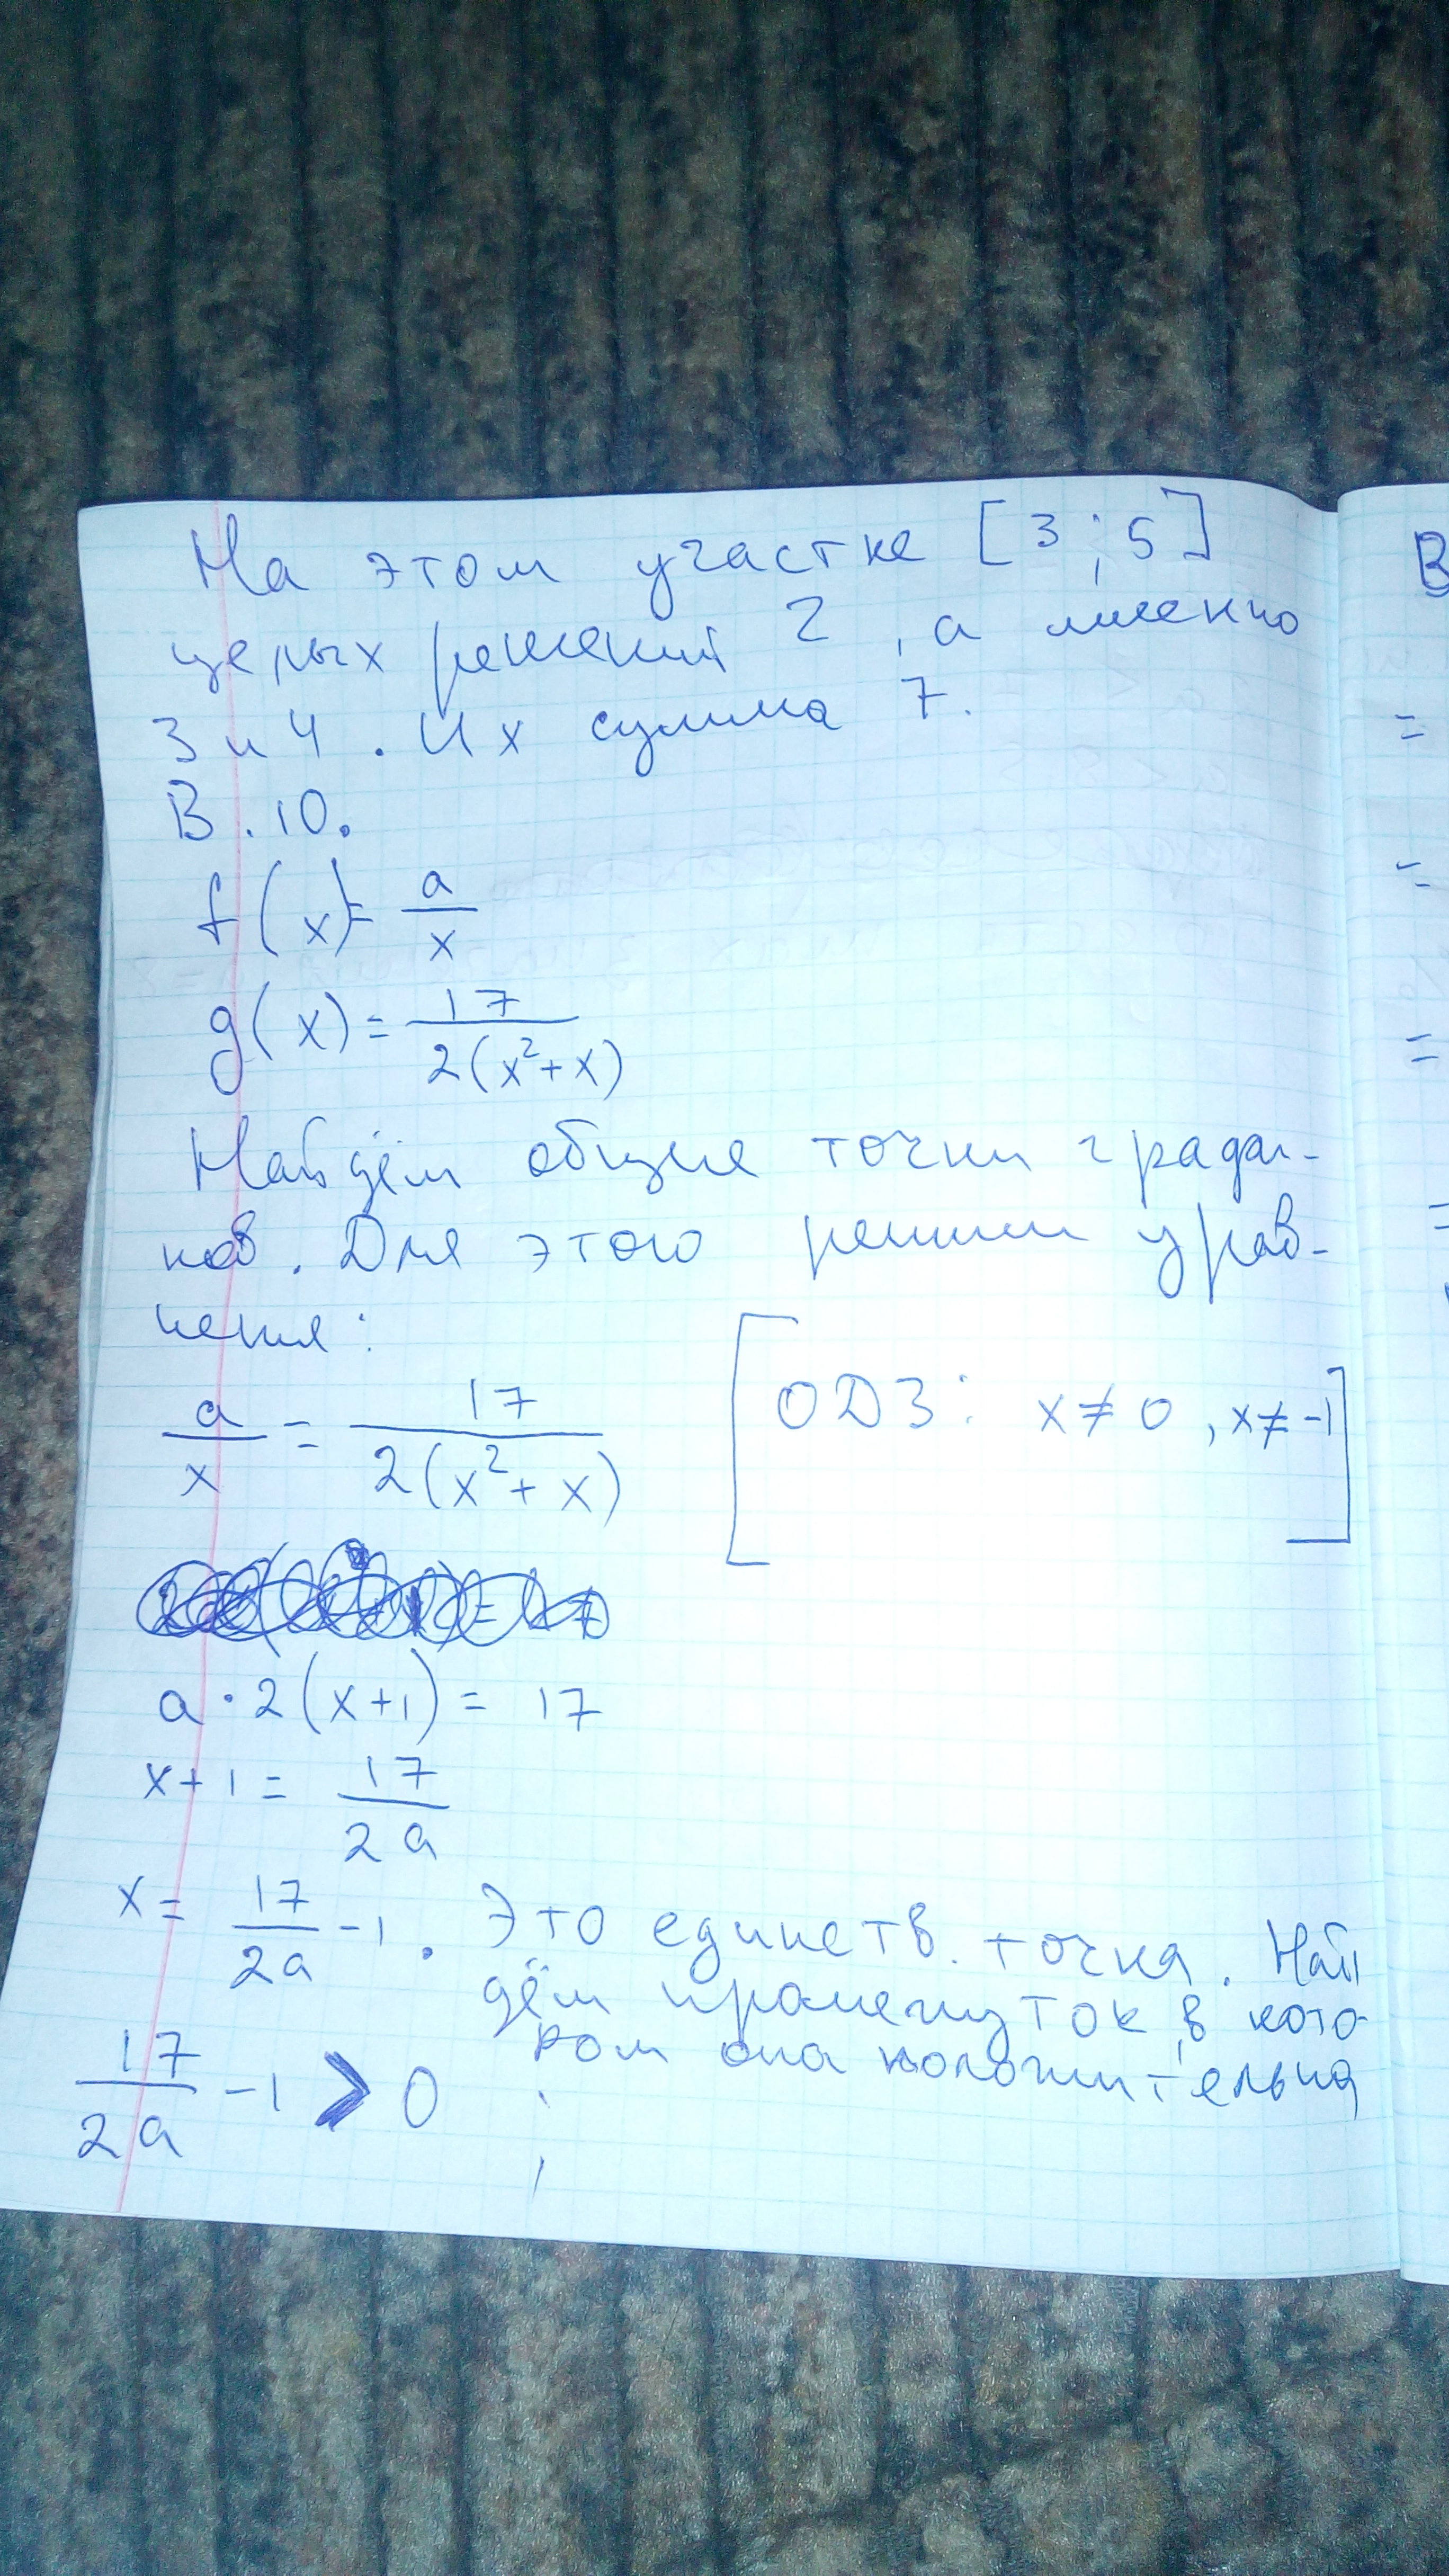 На этом участке [3;5]
целых решений 2, а именно
3 и 4. Их сумма 7.
В.10.
f(x)= a/x
g(x)= 17/2(x²+x)
Найдём общие точки графи-
ков. Для этого решим урав-
нения:
a/x = 17/2(x²+x) [ОДЗ: x≠0, x≠-1]
a·2(x+1)= 17
x+1= 17/2a
x= 17/2a -1. Это единств. точка. Най
дём промежуток, в кото-
ром она положительна
17/2a -1 > 0
В
=
=
=